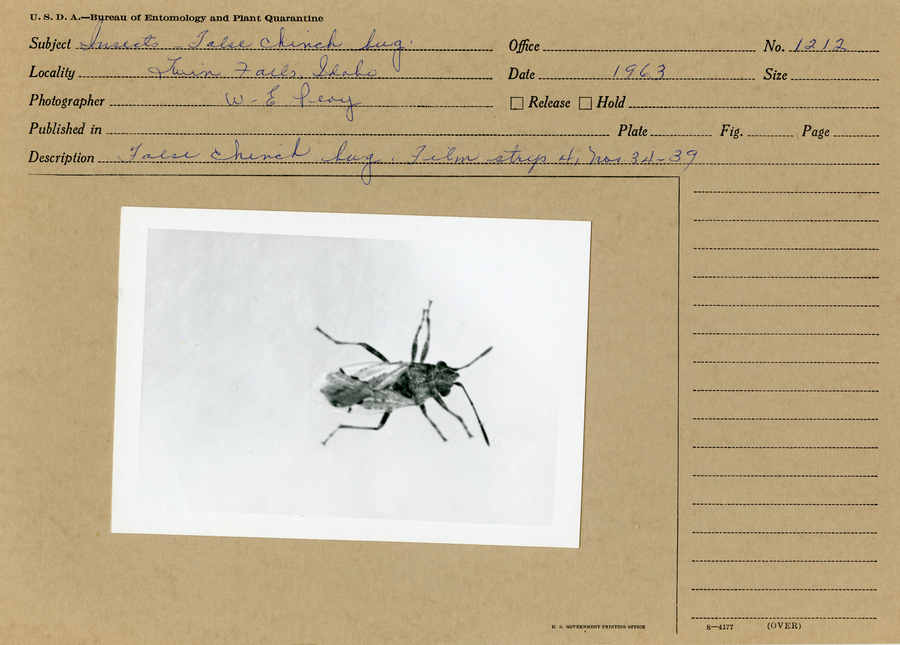 U. S. D. A.—Bureau of Entomology and Plant Quarantine
Subject Insects - False Chinch bug. Office No. 1212
Locality Twin Falls, Idaho Date 1963 Size
Photographer W-E Peay Release Hold
Published in Plate Fig. Page
Description False chinch bug. Film strip 4, Nos 34-39
U. S. GOVERNMENT PRINTING OFFICE
8—4177 (OVER)